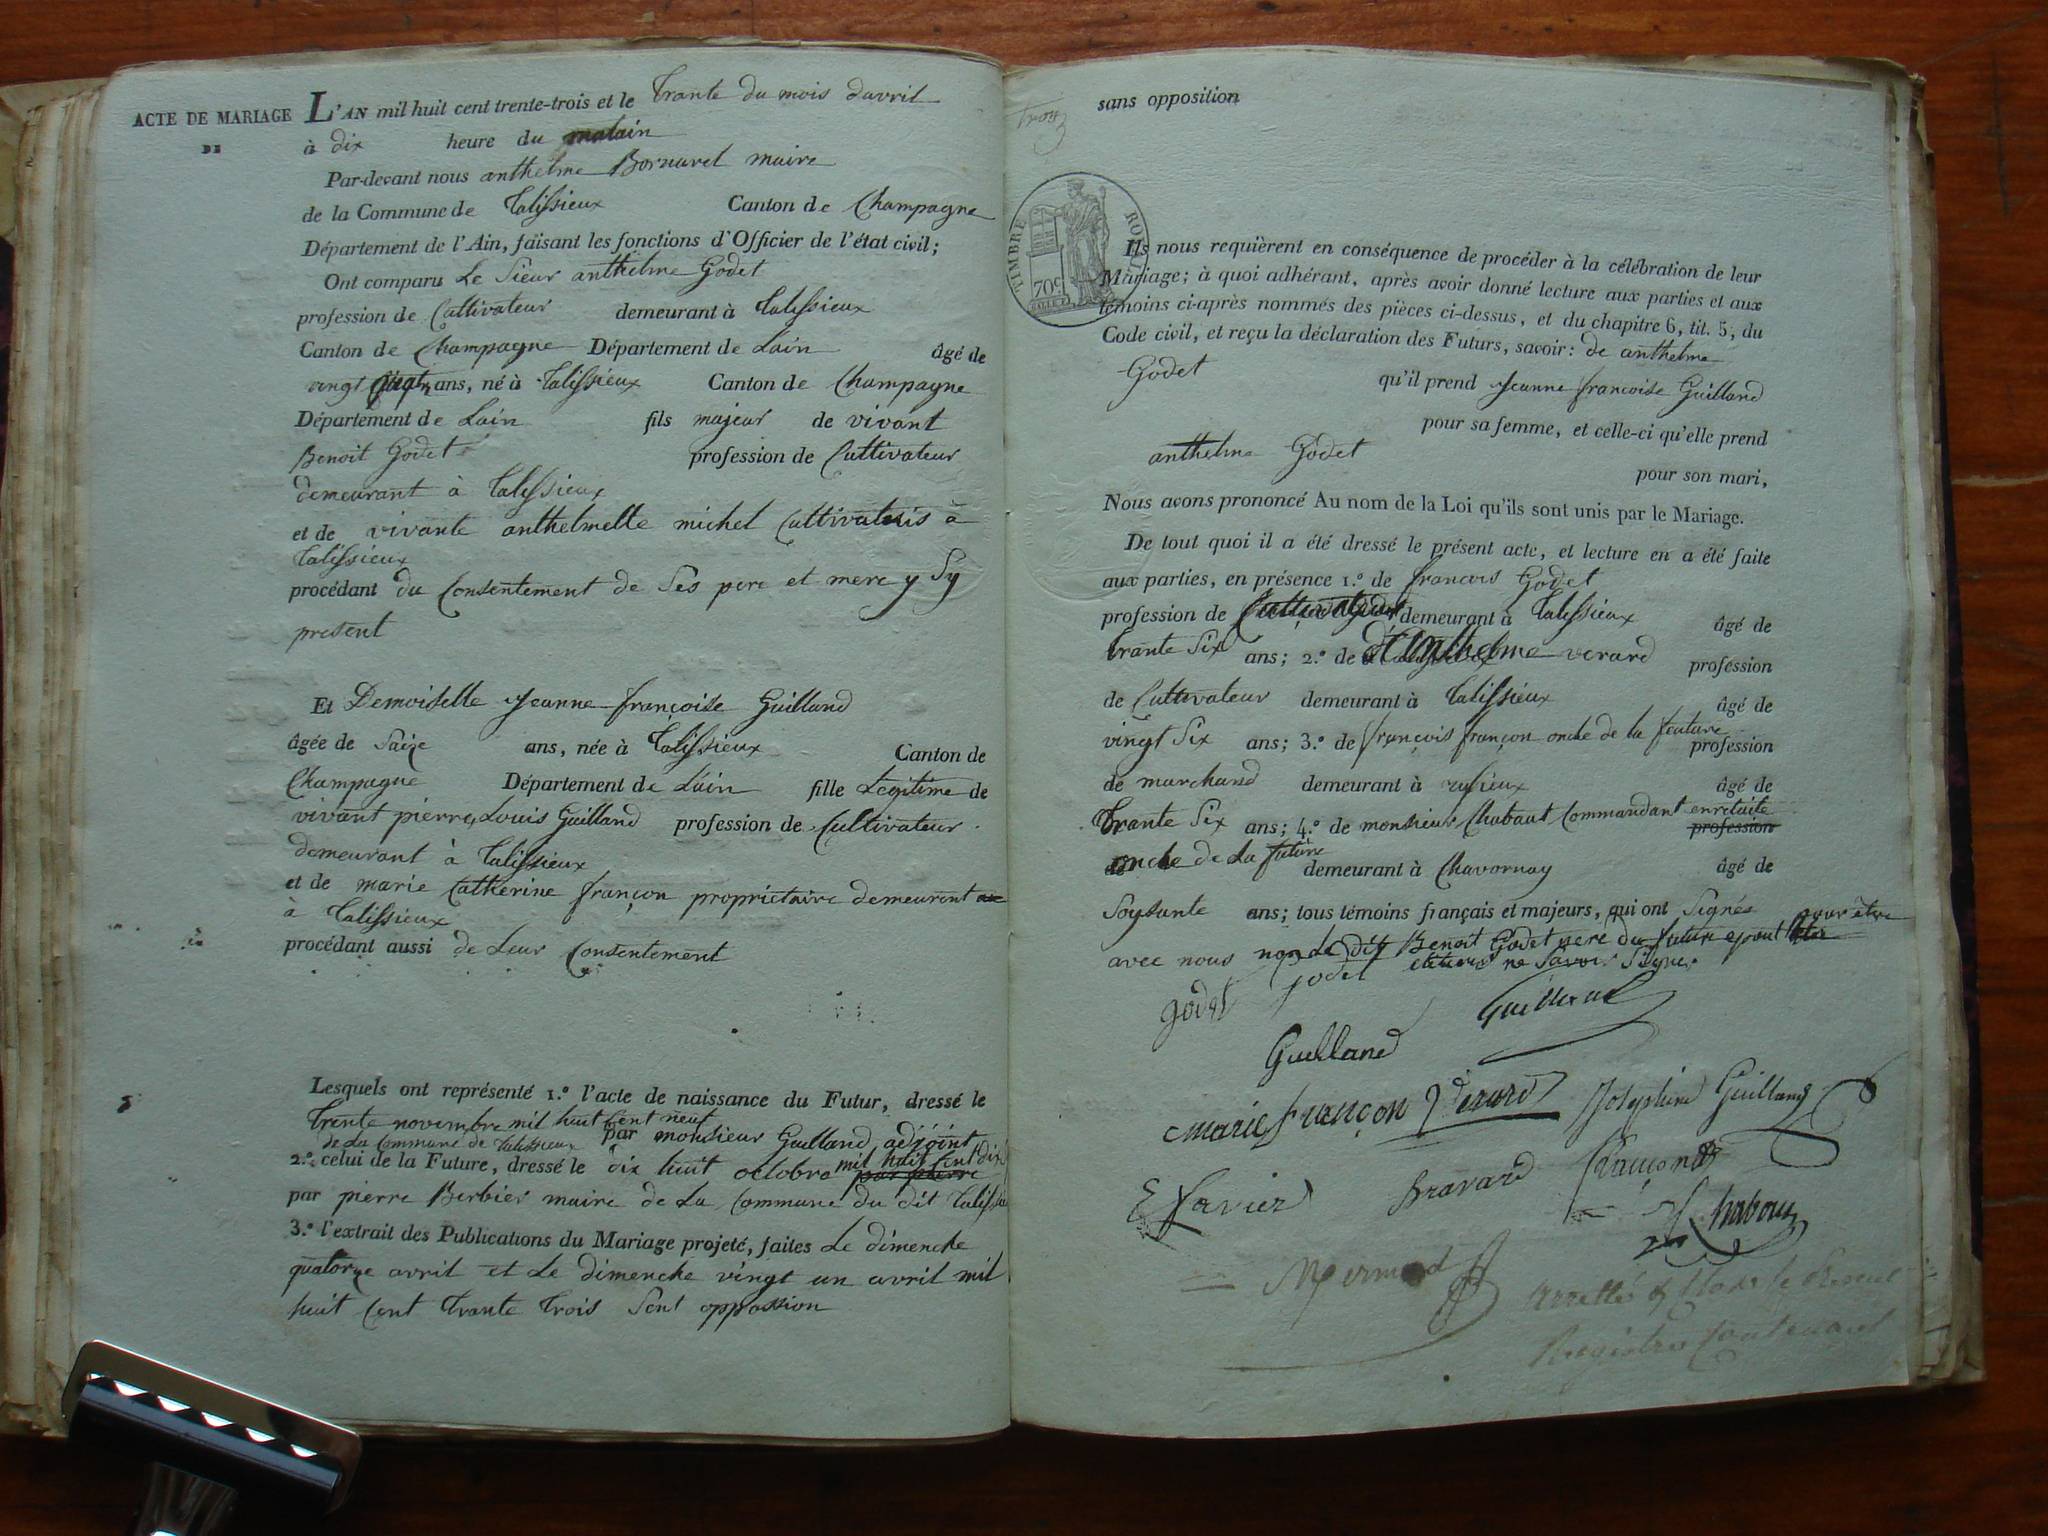 ACTE DE MARIAGE
DE
L'AN mil huit cent trente-trois et le trante du mois davril
à dix heure du matain
Par-devant nous anthelme Bornarel maire
de la Commune de talissieux Canton de Champagne
Département de l'Ain, faisant les fonctions d'Officier de l'état civil;
Ont comparu Le Sieur anthelme Godet
profession de Cultivateur demeurant à talissieux
Canton de Champagne Département de Lain âgé de
vingt ans, né à talissieux Canton de Champagne
Département de Lain fils majeur de vivant
Benoit Godet profession de Cultivateur
demeurant à talissieux
et de vivante anthelmette michel Cultivateuris à
talissieux
procédant du Consentement de Ses pere et mere y Sy
present
Et Demoiselle jeanne françoise Guilland
âgée de Saize ans, née à talissieux Canton de
Champagne Département de Lain fille Legitime de
vivant pierre Louis Guilland profession de Cultivateur
demeurant à talissieux
et de marie Catherine françon proprietaire demeurent
à talissieux
procédant aussi de Leur Consentement
Lesquels ont représenté 1.º l'acte de naissance du Futur, dressé le
trente novembre mil huit Cent neuf
de La Commune de talissieux par monsieur Guilland adjoint
2.º celui de la Future, dressé le dix huit octobre mil huit Cent dix par pierre
par pierre Berbier maire de La Commune du dit talissieu
3.º l'extrait des Publications du Mariage projeté, faites Le dimenche
quatorze avril et Le dimenche vingt un avril mil
huit Cent trante trois Sent oppossion
sans opposition
TIMBRE ROYAL
70c
Ils nous requièrent en conséquence de procéder à la célébration de leur
Mariage; à quoi adhérant, après avoir donné lecture aux parties et aux
témoins ci-après nommés des pièces ci-dessus, et du chapitre 6, tit. 5, du
Code civil, et reçu la déclaration des Futurs, savoir: de anthelme
Godet qu'il prend jeanne francoise Guilland
pour sa femme, et celle-ci qu'elle prend
anthelme Godet
pour son mari,
Nous avons prononcé Au nom de la Loi qu'ils sont unis par le Mariage.
De tout quoi il a été dressé le présent acte, et lecture en a été faite
aux parties, en présence 1.º de francois Godet
profession de Cultivateur demeurant à talissieux âgé de
trante Six ans; 2.º de anthelme verard profession
de Cultivateur demeurant à talissieux âgé de
vingt Six ans; 3.º de françois françon oncle de la feuture profession
de marchand demeurant à rufieux âgé de
trante Six ans; 4.º de monsieur Chabaut Commandant enretaite profession
oncle de La future demeurant à Chavornay âgé de
Soysante ans; tous témoins français et majeurs, qui ont Signés
avec nous non Le dit Benoit Godet pere du future epout pour être
ne Savoir Signer
godet godet
Guilland
Guilland
marie françon Verard Josephine Guilland
Bravard Ramond
Chabout
Mermod